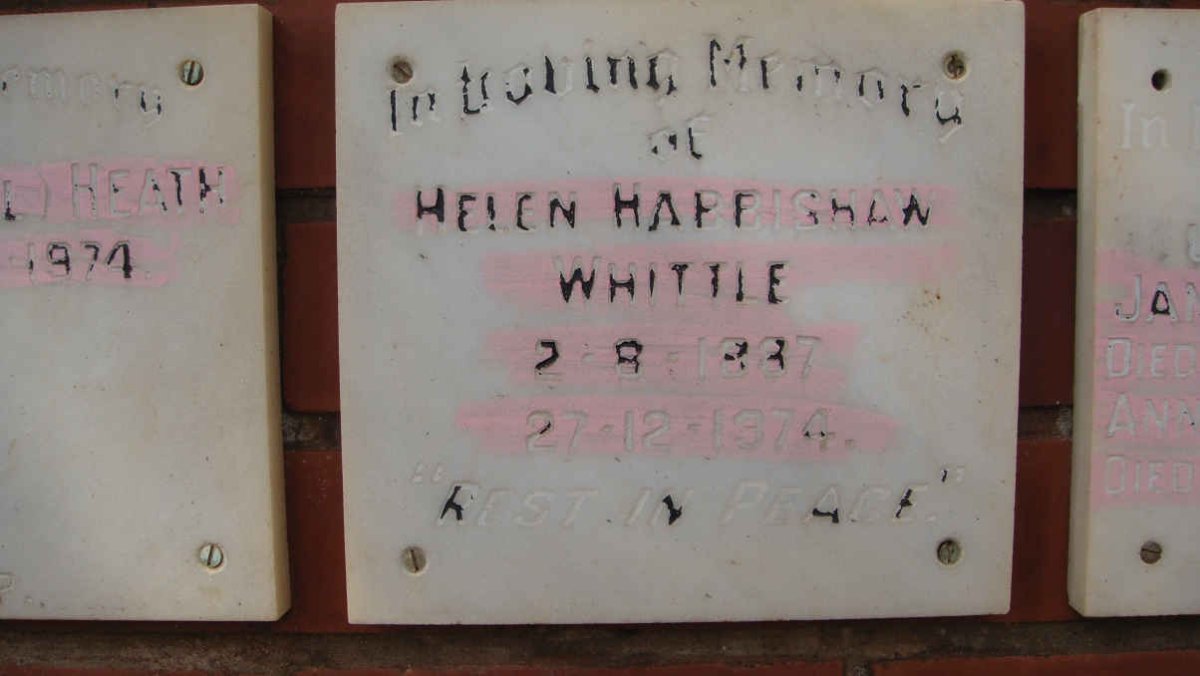 emory
L) HEATH
1974.
In Loving Memory
of
HELEN
WHITTLE
2-8-1887
27-12-1974.
"REST IN PEACE."
In
JAN
DIED
ANN
DIED